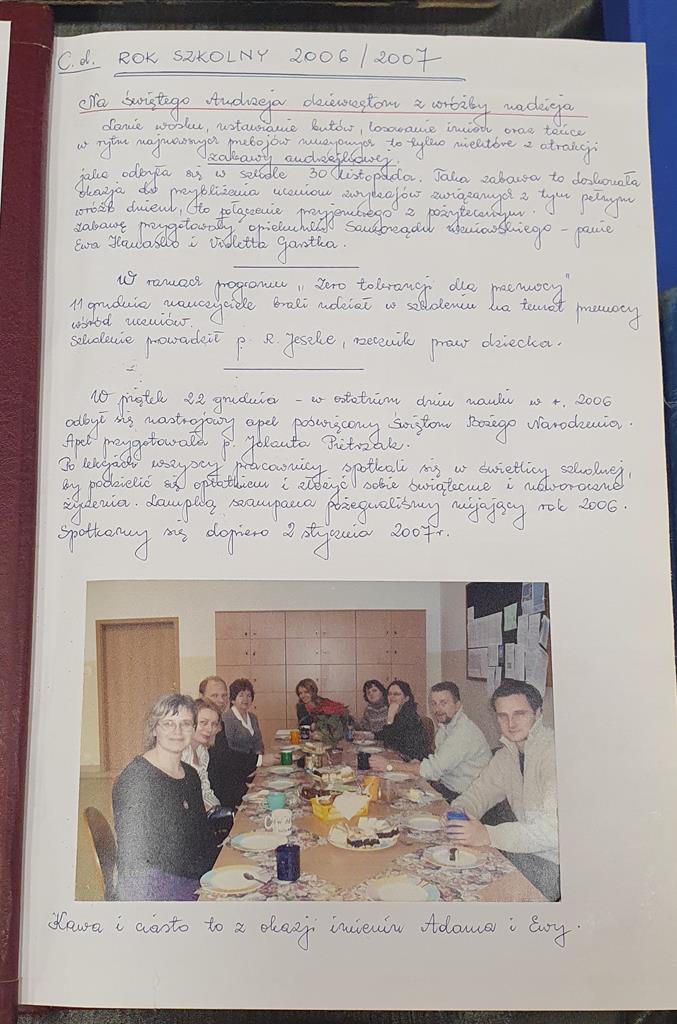 C.d. ROK SZKOLNY 2006/2007
Na świętego Andrzeja dziewczętom z wróżby nadzieja
Lanie wosku, ustawianie butów, losowanie imion oraz tańce
w rytm najnowszych przebojów muzycznych to tylko niektóre z atrakcji
zabawy andrzejkowej,
jaka odbyła się w szkole 30 listopada. Taka zabawa to doskonała
okazja do przybliżenia uczniom zwyczajów związanych z tym pełnym
wróżb dniem, to połączenie przyjemnego z pożytecznym.
Zabawę przygotowały opiekunki Samorządu Uczniowskiego - panie
Ewa i Violetta Gastka.
W ramach programu "Zero tolerancji dla przemocy"
11 grudnia nauczyciele brali udział w szkoleniu na temat przemocy
wśród uczniów.
Szkolenie prowadził p. R. Jeszke, rzecznik praw dziecka.
W piątek 22 grudnia - w ostatnim dniu nauki w r. 2006
odbył się nastrojowy apel poświęcony Świętom Bożego Narodzenia.
Apel przygotowała p. Jolanta Pietrzak.
Po lekcjach wszyscy pracownicy spotkali się w świetlicy szkolnej,
by podzielić się opłatkiem i złożyć sobie świąteczne i noworoczne
życzenia. Lampką szampana pożegnaliśmy mijający rok 2006.
Spotkamy się dopiero 2 stycznia 2007r.
Kawa i ciasto to z okazji imienin Adama i Ewy.